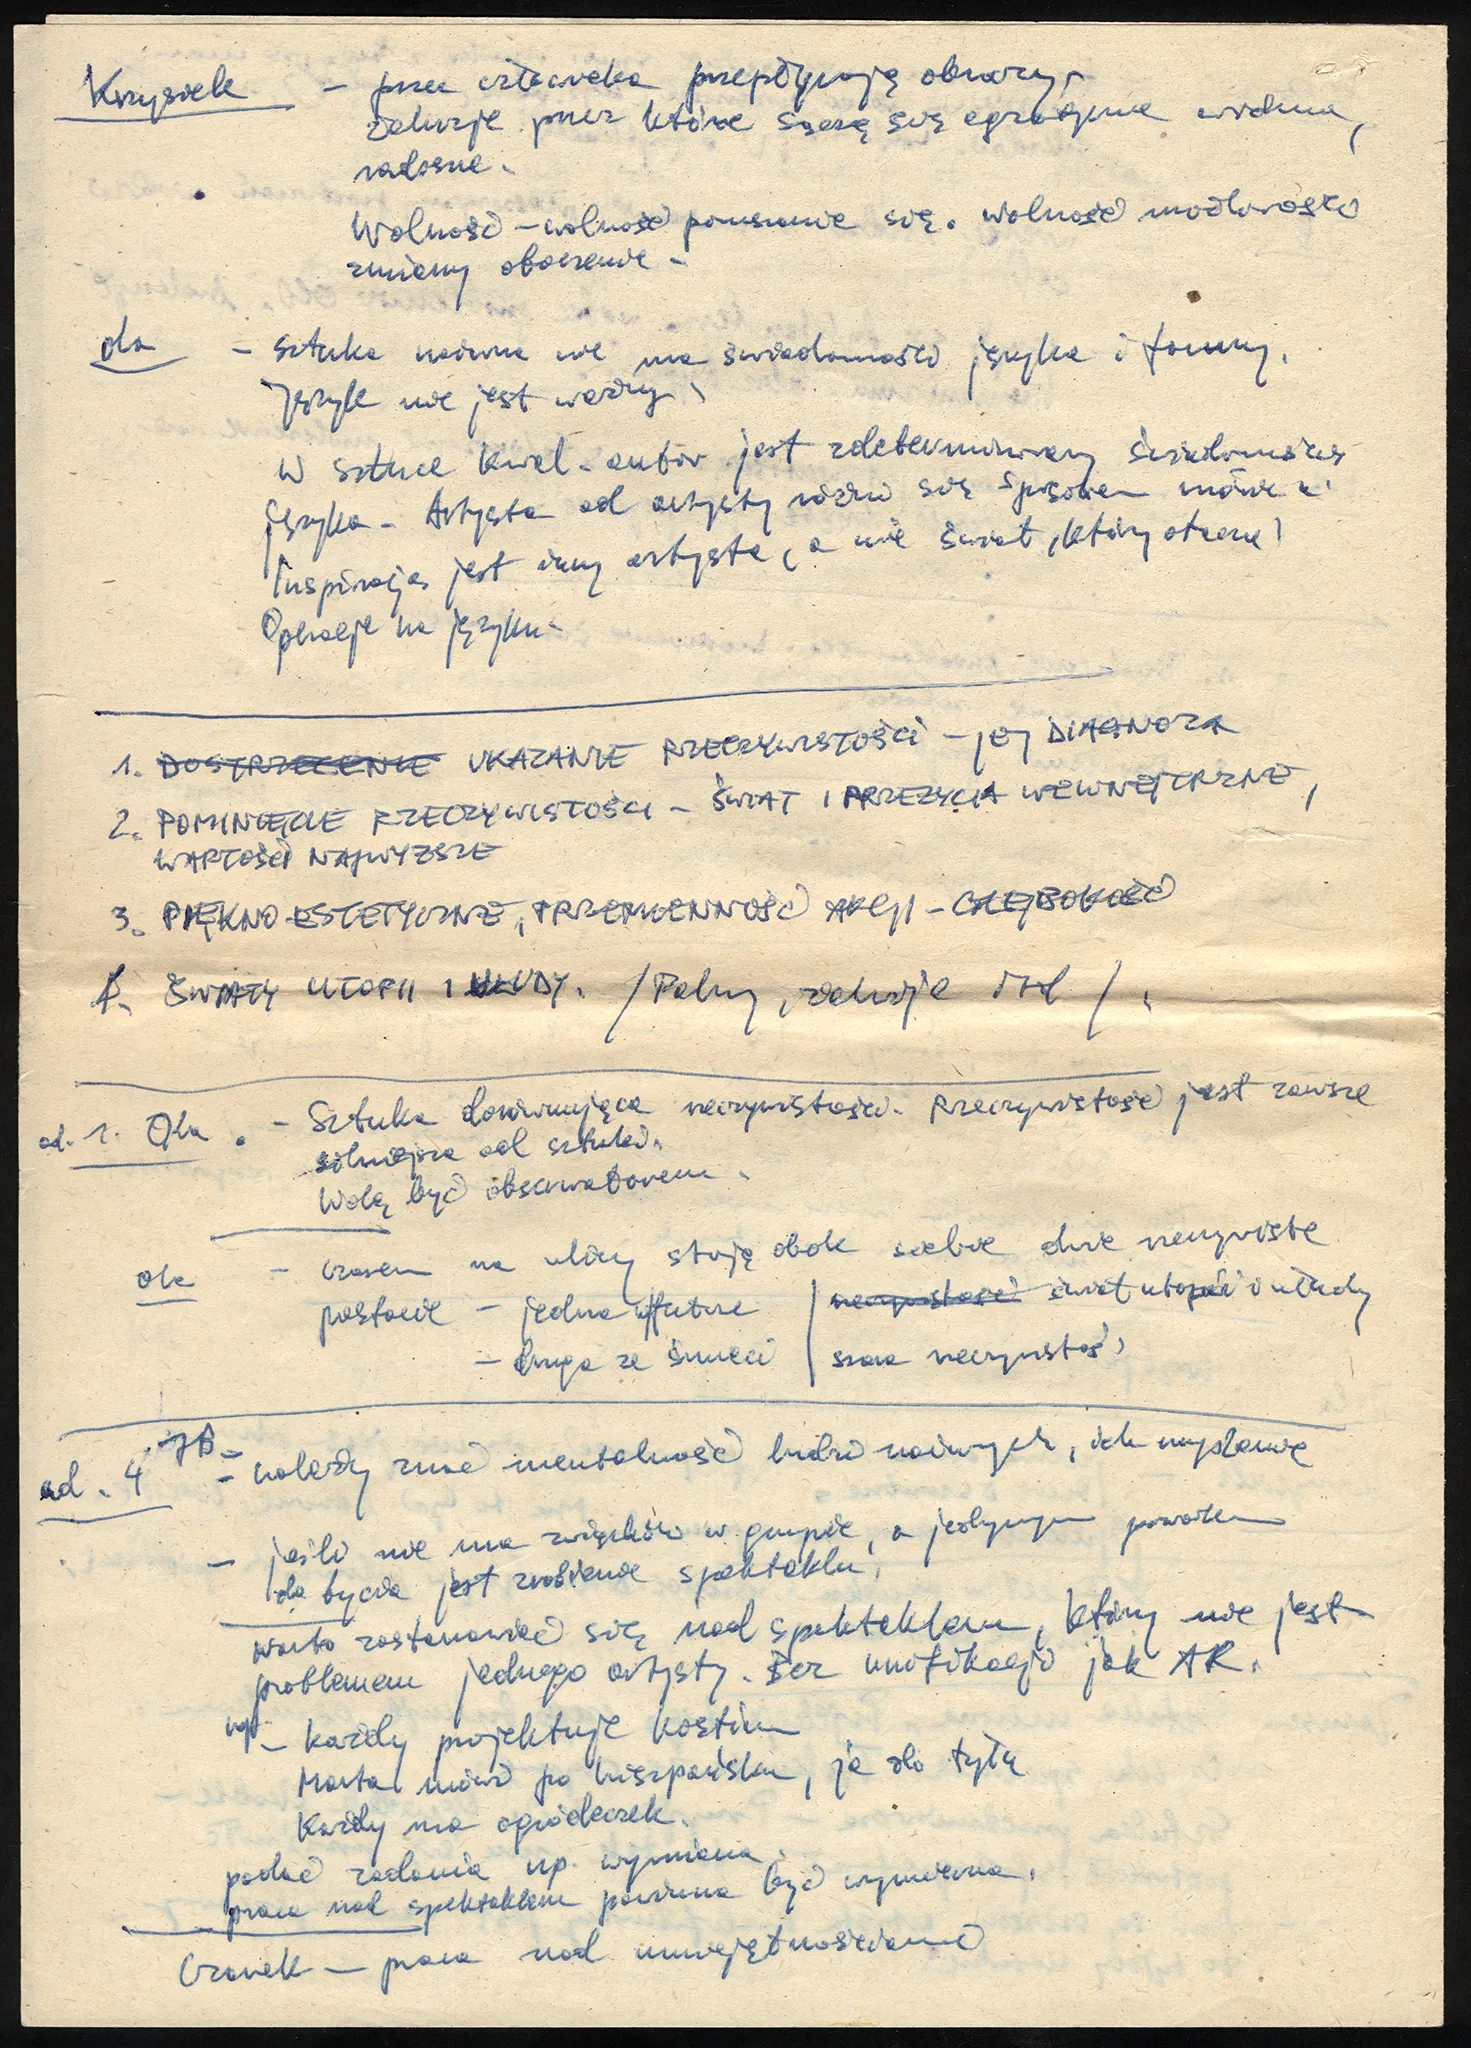 Krzysiek – przez człowieka przepływają obrazy,
relacje przez które sączą się egzotyczne widma,
radosne.
Wolność – wolność poruszania się. wolność możliwości
zmiany otoczenia –
Ola – sztuka naiwna nie ma świadomości języka i formy.
Język nie jest ważny.
W sztuce kwal. autor jest zdeterminowany świadomością
języka – Artysta od artysty różni się sposobem mówienia.
Inspiracją jest inny artysta, a nie świat, który otacza.
Operacje na języku –
1. DOSTRZEżENIE UKAZANIE RZECZYWISTOŚCI – jej DIAGNOZA
2. POMINIĘCIE RZECZYWISTOŚCI – ŚWIAT I PRZEŻYCIA WEWNĘTRZNE,
WARTOŚCI NAJWYŻSZE
3. PIĘKNO ESTETYCZNE, PRZEMIENNOŚĆ AKCJI – GŁĘBOKOŚĆ
4. ŚWIATY UTOPII I UŁUDY. / Palmy, relacje itd /.
ad. 1. Ola. – Sztuka dorównująca rzeczywistości. Rzeczywistość jest zawsze
silniejsza od sztuki.
Wolę być obserwatorem.
Ola – czasem na ulicy stoją obok siebie dwie rzeczywiste
postacie – jedna w futrze / rzeczywistość świat utopii i ułudy
– druga ze śmieci / szara rzeczywistość,
ad. 4 JB – – należy znać mentalność ludzi naiwnych, ich wyobraźnię
– jeśli nie ma związków w grupie, a jedynym powodem
do bycia jest zrobienie spektaklu.
Warto zastanowić się nad spektaklem, który nie jest
problemem jednego artysty. Bez unifikacji jak AR.
np. – Każdy projektuje kostium
Marta mówi po hiszpańsku, ja do tyłu
Każdy ma ogródeczek.
podać zadania np. wymiana.
praca nad spektaklem powinna być wymienna.
Czarek – praca nad umiejętnościami